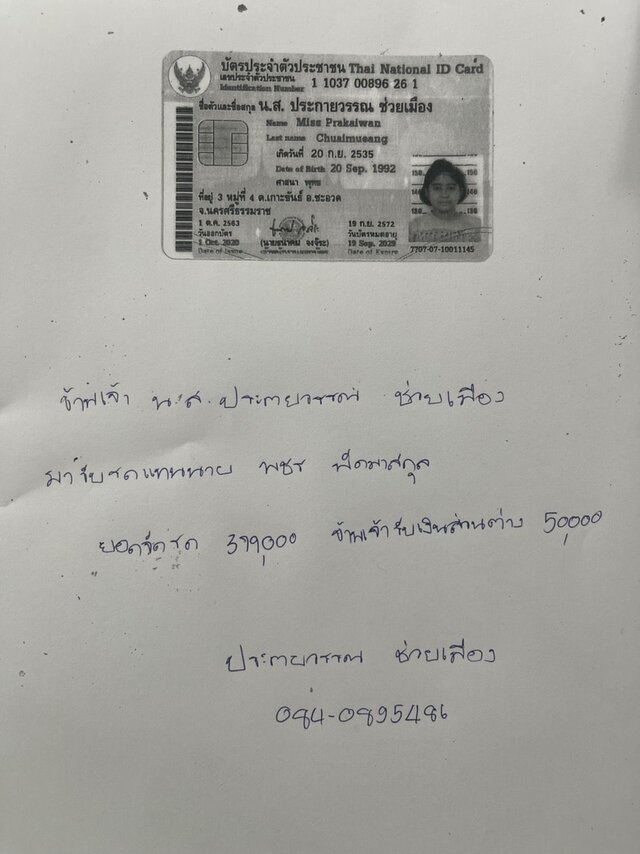 บัตรประจำตัวประชาชน Thai National ID Card
เลขประจำตัวประชาชน
Identification Number 1 1037 00896 26 1
ชื่อตัวและชื่อสกุล น.ส. ประกายวรรณ ช่วยเมือง
Name Miss Prakaiwan
Last name Chuaimueang
เกิดวันที่ 20 ก.ย. 2535
Date of Birth 20 Sep. 1992
ศาสนา พุทธ
ที่อยู่ 3 หมู่ที่ 4 ต.เกาะขันธ์ อ.ชะอวด
จ.นครศรีธรรมราช
1 ต.ค. 2563
วันออกบัตร
1 Oct. 2020
Date of Issue
19 ก.ย. 2572
วันบัตรหมดอายุ
19 Sep. 2029
Date of Expiry
7707-07-10011145
ข้าพเจ้า น.ส.ประกายวรรณ ช่วยเมือง
มารับรถแทนนาย พชร
ยอดจัดรถ 399,000 ข้าพเจ้ารับเงินส่วนต่าง 50,000
ประกายวรรณ ช่วยเมือง
084-0895486